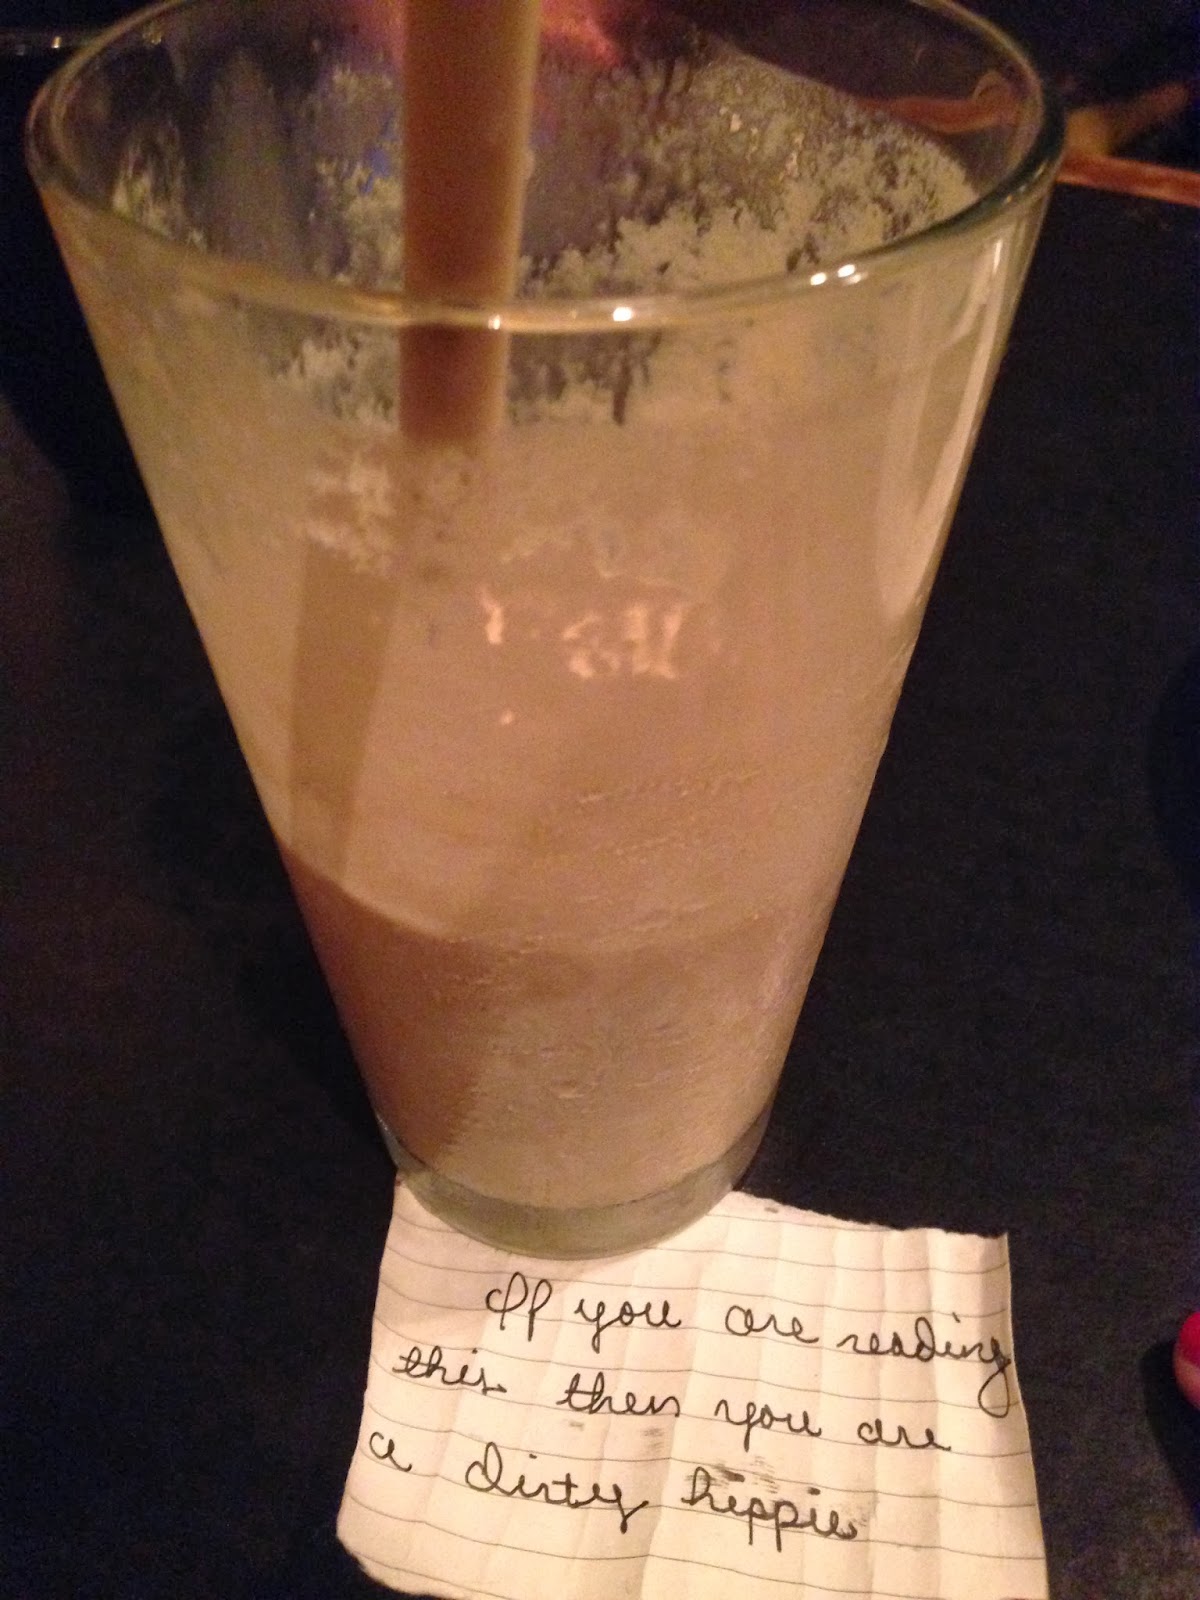 If you are reading
this then you are
a dirty hippie